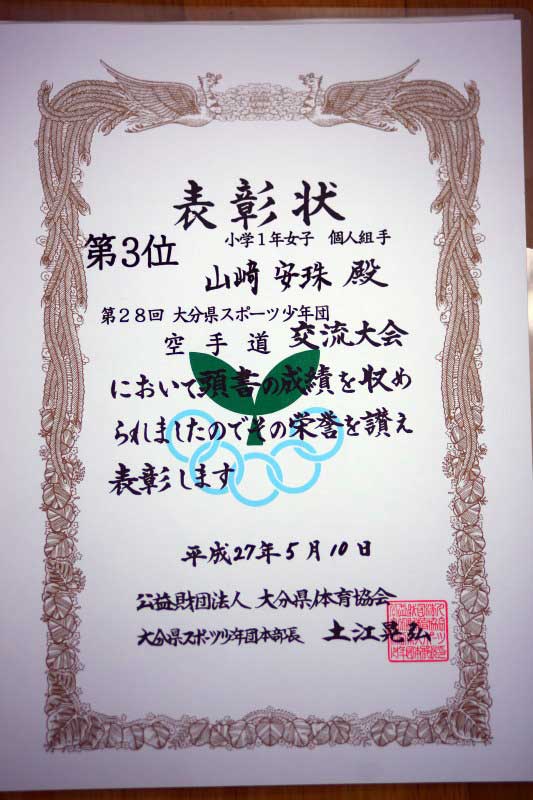 表彰状
小学1年女子 個人組手
第3位
山﨑 安珠 殿
第28回 大分県スポーツ少年団
空手道 交流大会
において頭書の成績を収め
られましたのでその栄誉を讃え
表彰します
平成27年5月10日
公益財団法人 大分県体育協会
大分県スポーツ少年団本部長 土江晃弘